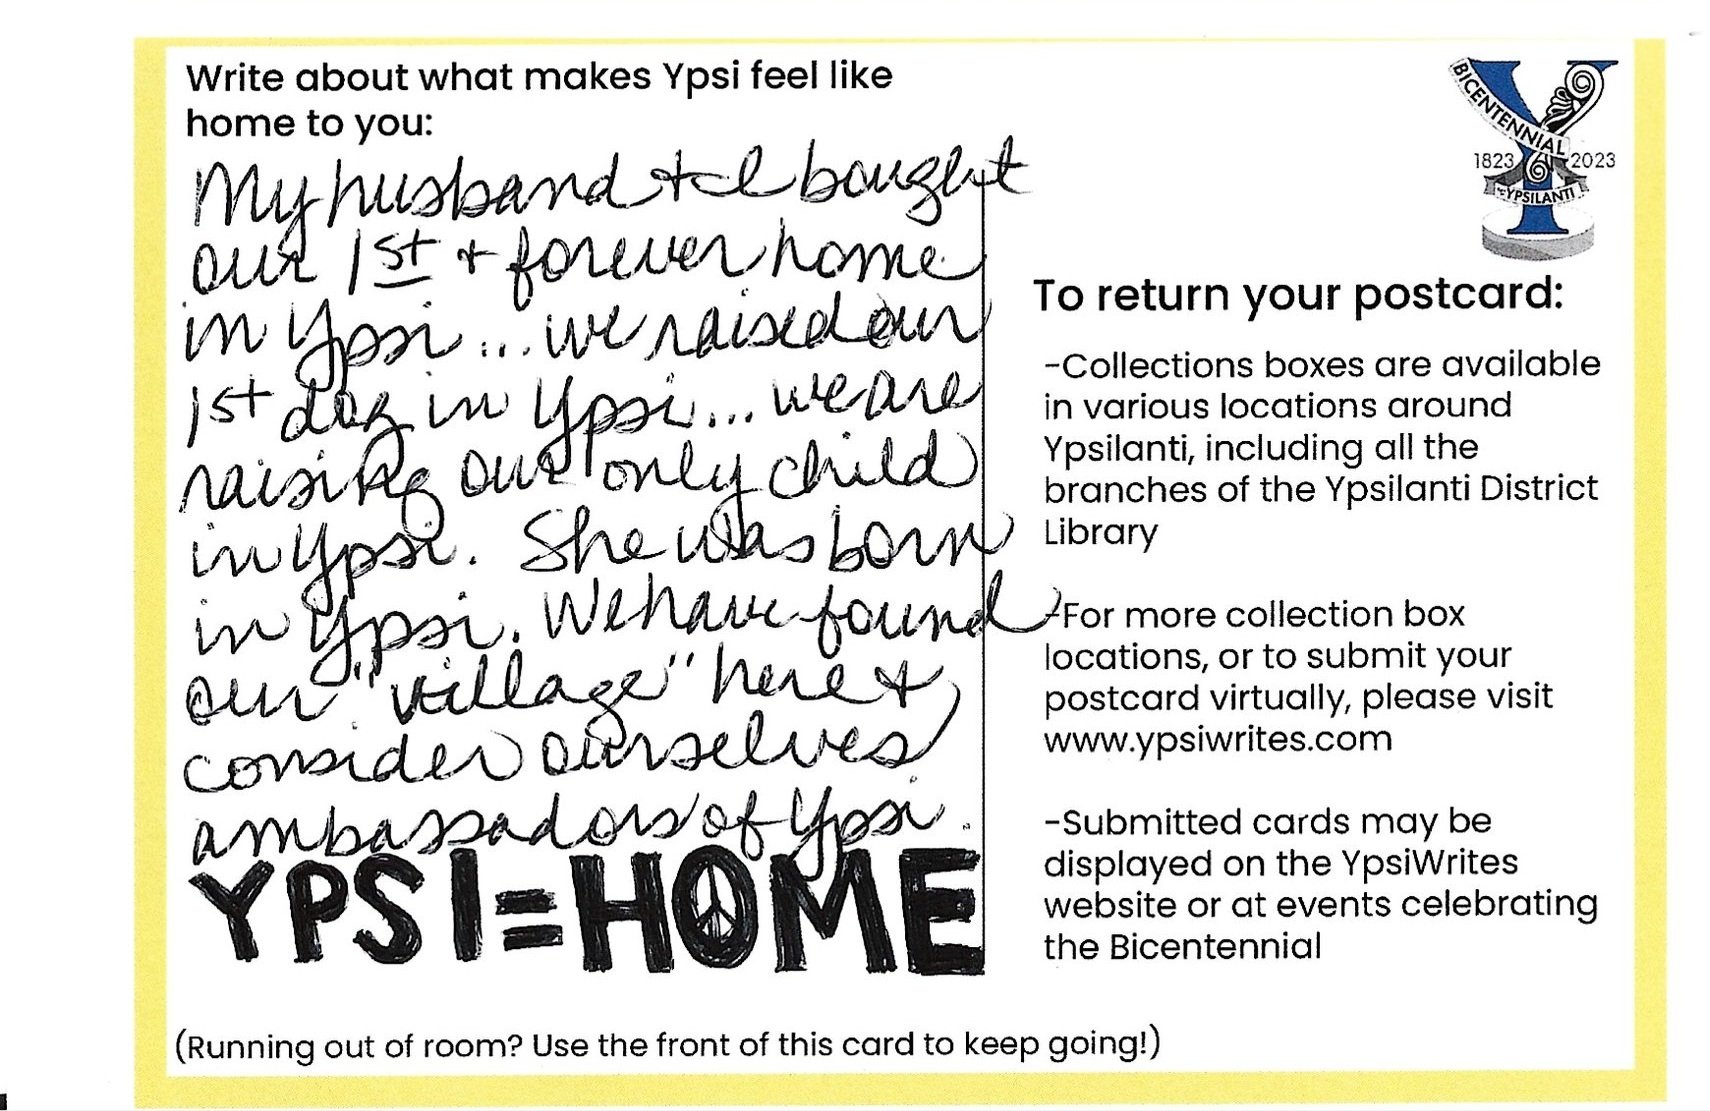 Write about what makes Ypsi feel like
home to you:
My husband + I bought
our 1st + forever home
in Ypsi...we raised our
1st dog in Ypsi...we are
raising our only child
in Ypsi. She was born
in Ypsi. We have found
our "village" here +
consider ourselves
ambassadors of Ypsi.
YPSI=HOME
(Running out of room? Use the front of this card to keep going!)
BICENTENNIAL
1823 2023
YPSILANTI
To return your postcard:
-Collections boxes are available
in various locations around
Ypsilanti, including all the
branches of the Ypsilanti District
Library
-For more collection box
locations, or to submit your
postcard virtually, please visit
www.ypsiwrites.com
-Submitted cards may be
displayed on the YpsiWrites
website or at events celebrating
the Bicentennial